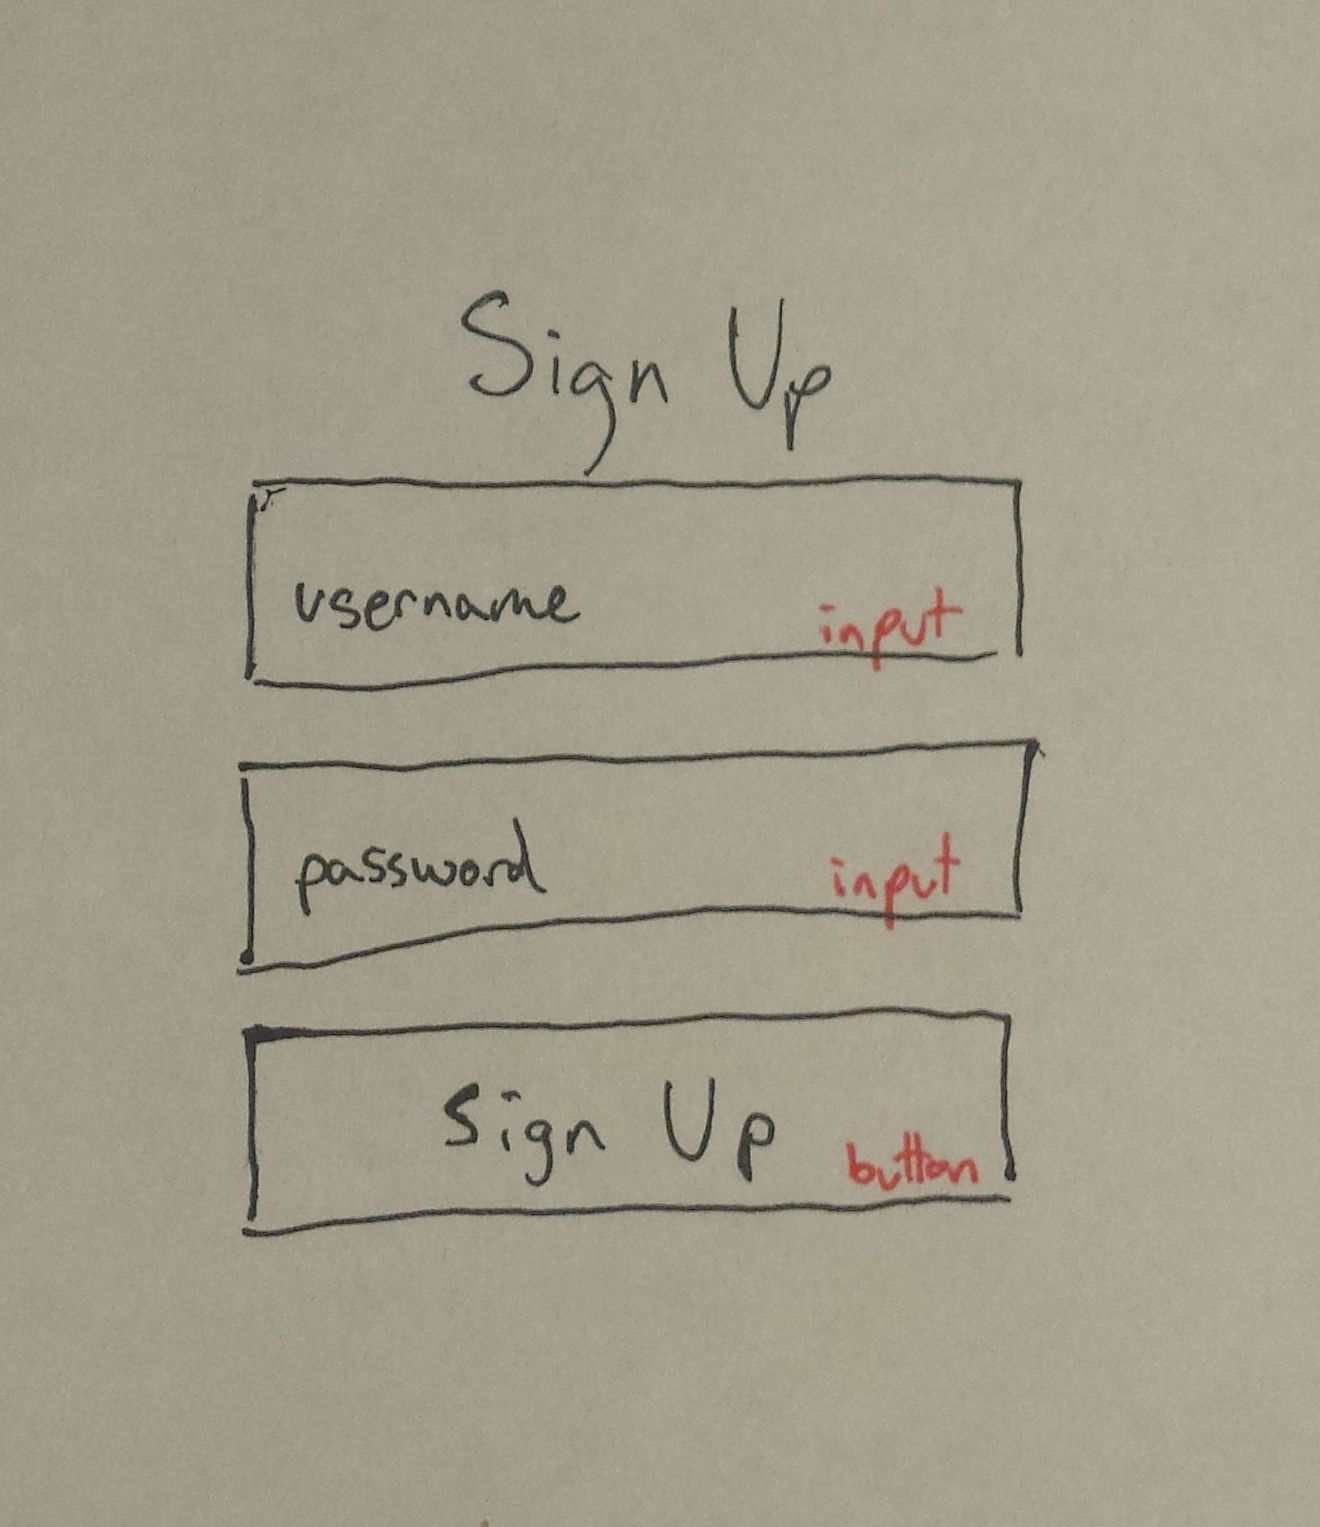 Sign Up
username input
password input
Sign Up button